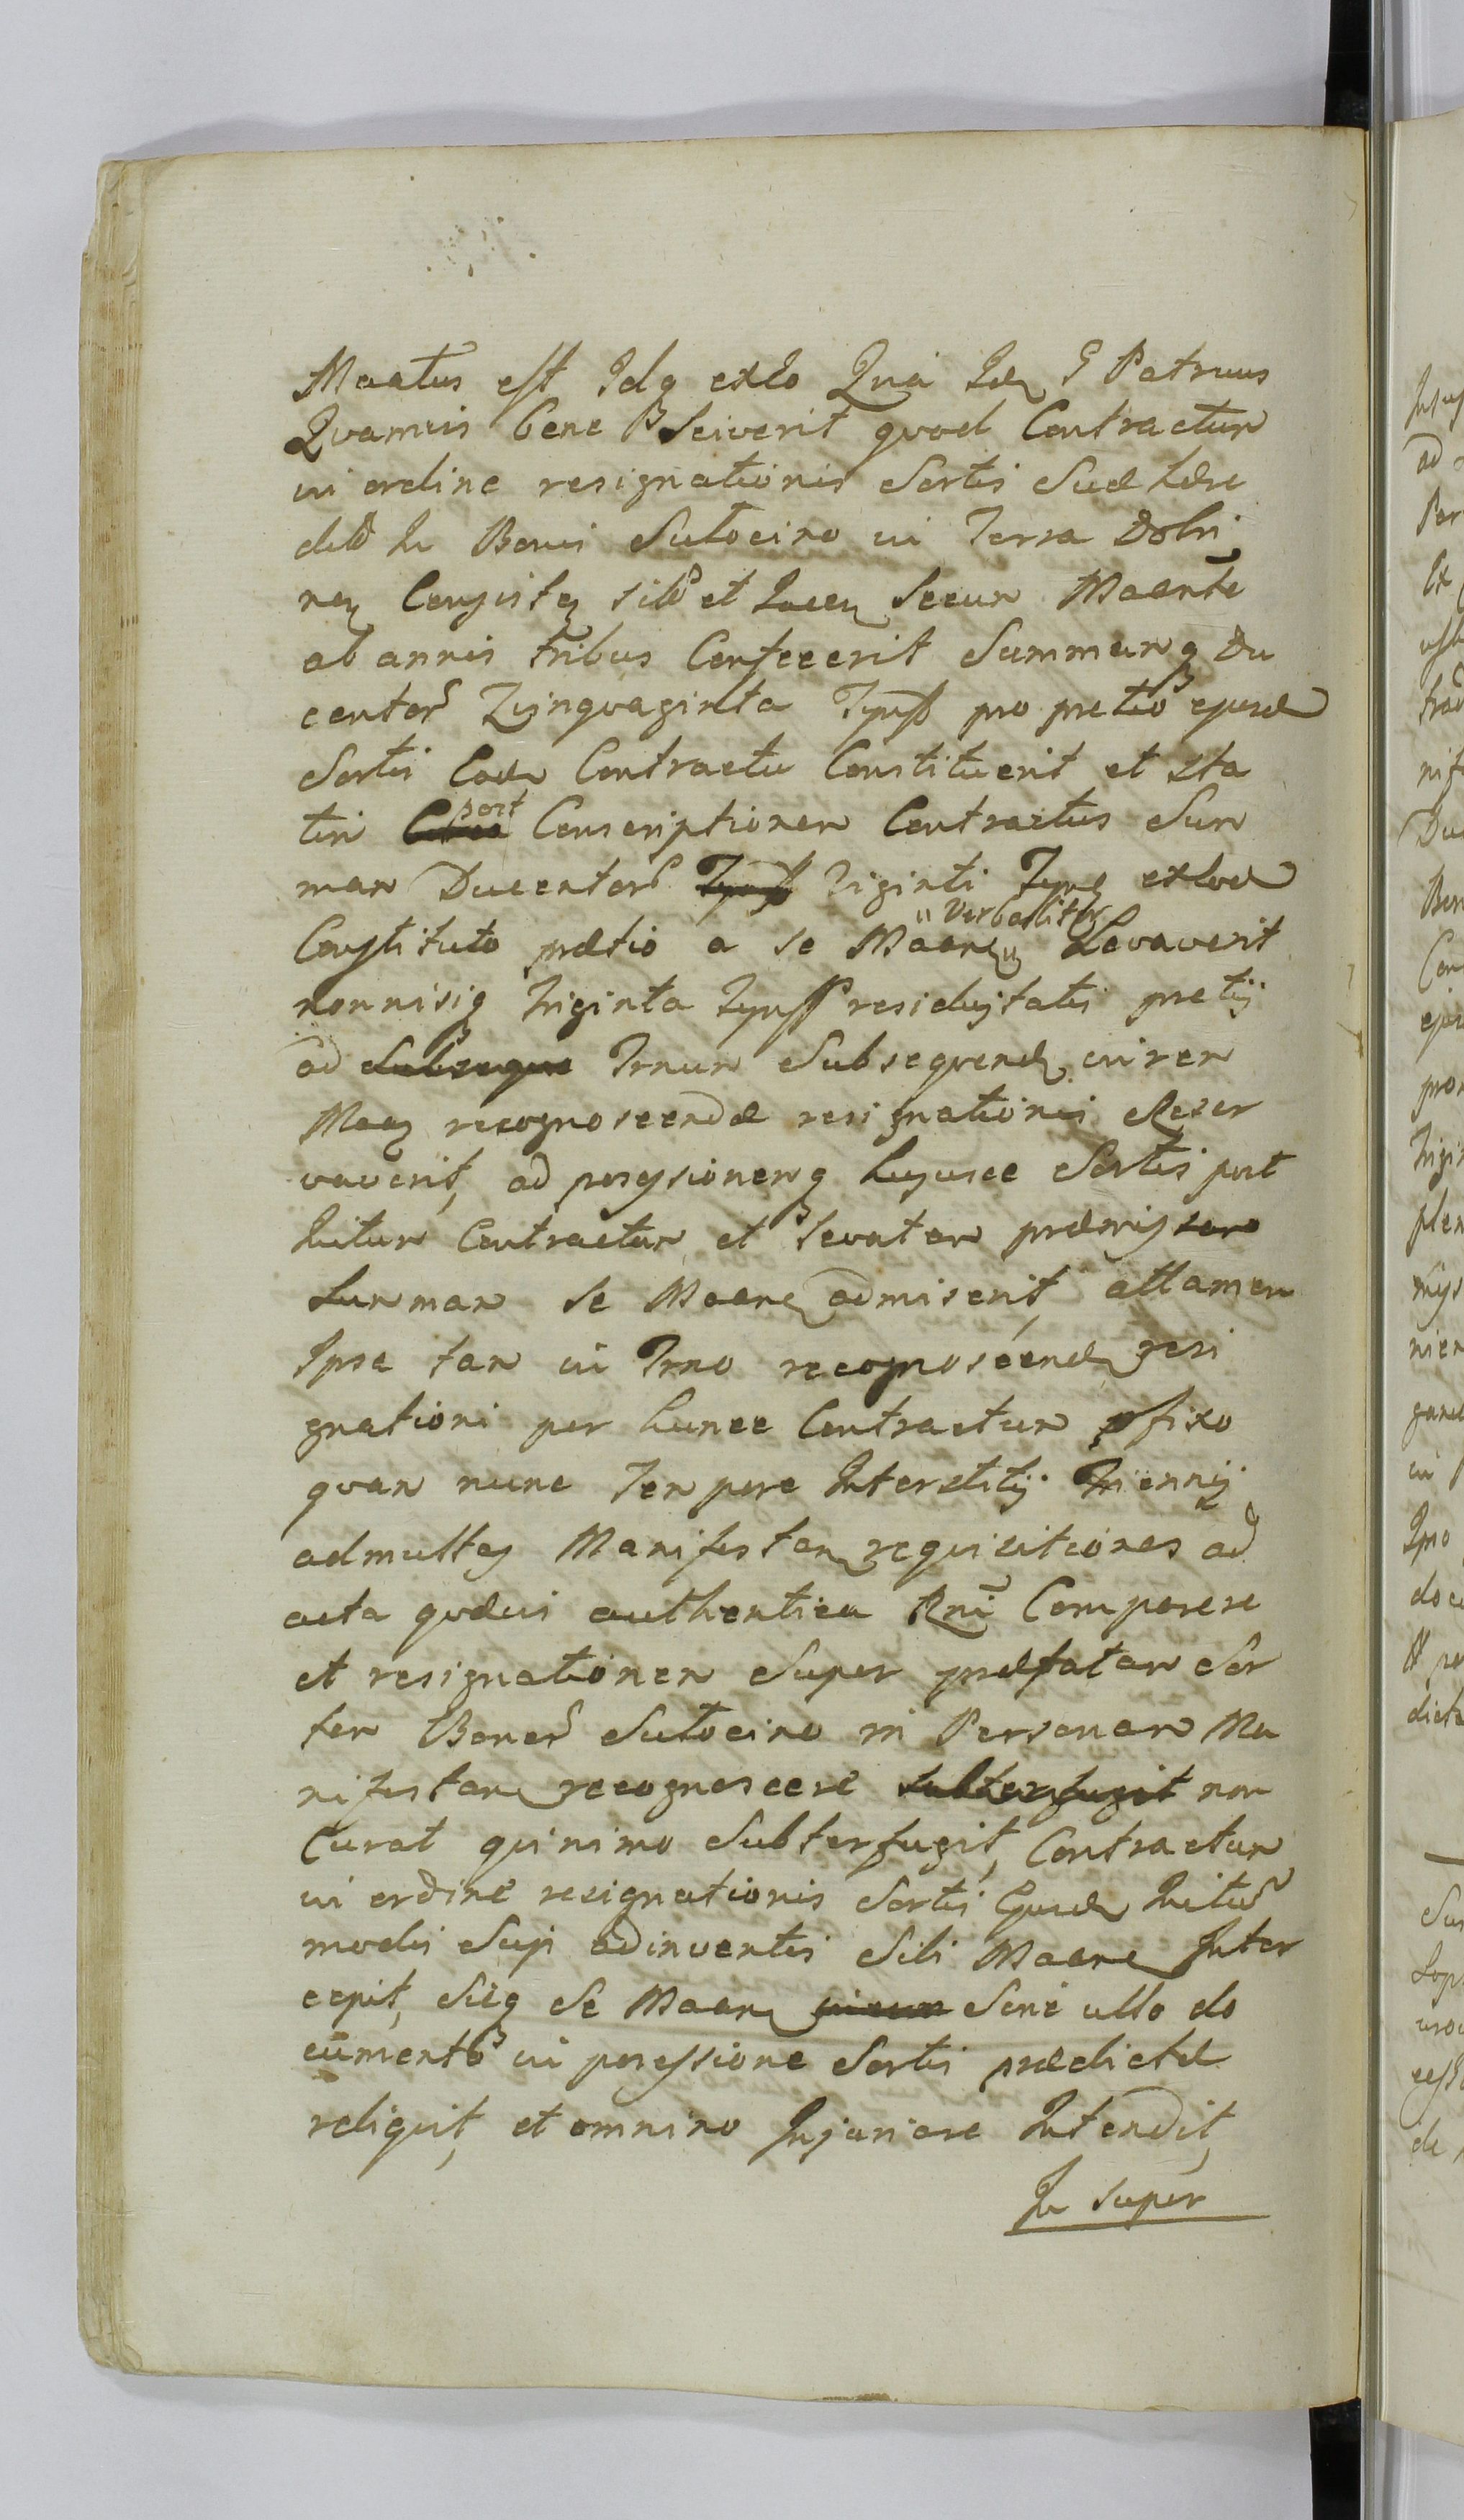 Maatus est Idq exło Quia Idem G Patruus
Quamvis bene Sciverit quod Contractum
in ordine resignationis Sortis Suæ hære
ditæ in Bonis Sutocino in Terra Dobri
nen Consisten sitæ et hacen Secum Maante
ab annis tribus Confecerit Summamq Du
centor Quinquaginta Tynff pro pretio ejusd
Sortis Eodem Contractu Constituerit et Sta
tim post Conscriptionem Contractus Sum
mam Ducentor Tynff Viginti Tynf exeod
Constituto prætio a se Maanen "Verbaliter" Levaverit
nonnisiq triginta Tynff residujtatis pretij
ad Subseque Trnum Subsequend, in rem
Maan recognoscendæ resignationis Reser
vaverit, ad possessionemq hujusce Sortis post
Initum Contractum et levatam præmissam
Summam Se Maanem admiserit, attamen
Ipse tam in Trno recognoscend resi
gnationi per hunce Contractum pfixo
quam nunc Tempore Interstitij Triennij
ad multas Manifestan requisitiones ad
acta quævis authentica Rni Comparere
et resignationem Super præfatam Sor
tem Bonor Sutocino in Personam Ma
nifestan recognoscere subterfugit non
Curat quinimo Subterfugit, Contractum
in ordine resignationis Sortis Ejusd Initum
modis Supi adinventis Sibi Maane Inter
cepit, Sicq Se Maan Sine ullo do
cumento in possessione Sortis prædictæ
reliquit, et omnino Injuriare Intendit,
In super